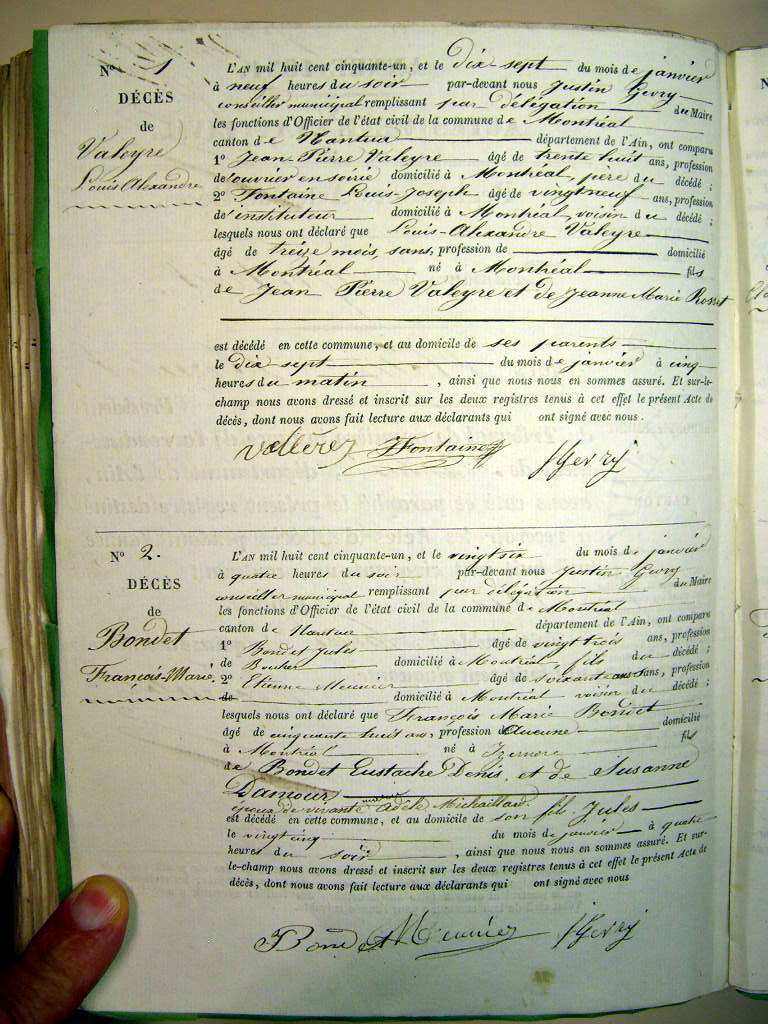 N° 1
DÉCÈS
de
Valeyre
Louis Alexandre
L'AN mil huit cent cinquante-un, et le dix sept du mois de janvier
à neuf heures du soir par-devant nous Justin Gevry
conseiller municipal remplissant par délégation du Maire
les fonctions d'Officier de l'état civil de la commune de Montréal
canton de Nantua département de l'Ain, ont comparu
1° Jean-Pierre Valeyre âgé de trente huit ans, profession
de ouvrier en soirie domicilié à Montréal, père du décédé ;
2° Fontaine Louis-Joseph âgé de vingt neuf ans, profession
de instituteur domicilié à Montréal, voisin du décédé ;
lesquels nous ont déclaré que Louis-Alexandre Valeyre
âgé de treize mois, sans, profession de domicilié
à Montréal né à Montréal fils
de Jean Pierre Valeyre et de Jeanne Marie Rosset
est décédé en cette commune, et au domicile de ses parents
le dix sept du mois de janvier à cinq
heures du matin, ainsi que nous nous en sommes assuré. Et sur-le-
champ nous avons dressé et inscrit sur les deux registres tenus à cet effet le présent Acte de
décès, dont nous avons fait lecture aux déclarants qui ont signé avec nous.
Fontaine JGevry
N° 2.
DÉCÈS
de
Bondet
François-Marie,
L'AN mil huit cent cinquante-un, et le vingt six du mois de janvier
à quatre heures du soir par-devant nous Justin Gevry
conseiller municipal remplissant par délégation du Maire
les fonctions d'Officier de l'état civil de la commune de Montréal
canton de Nantua département de l'Ain, ont comparu
1° Bondet Jules âgé de vingt trois ans, profession
de Boucher domicilié à Montréal, fils du décédé ;
2° Etienne Meunier âgé de soixante ans, profession
de domicilié à Montréal voisin du décédé ;
lesquels nous ont déclaré que François Marie Bondet
âgé de cinquante huit ans, profession d'aucune domicilié
à Montréal né à Izernore fils
de Bondet Eustache Denis, et de Susanne
Damour
époux de vivante Adèle Michaillard
est décédé en cette commune, et au domicile de son fils Jules
le vingt cinq du mois de janvier à quatre
heures du soir, ainsi que nous nous en sommes assuré. Et sur-
le-champ nous avons dressé et inscrit sur les deux registres tenus à cet effet le présent Acte de
décès, dont nous avons fait lecture aux déclarants qui ont signé avec nous
Bondet Meunier JGevry